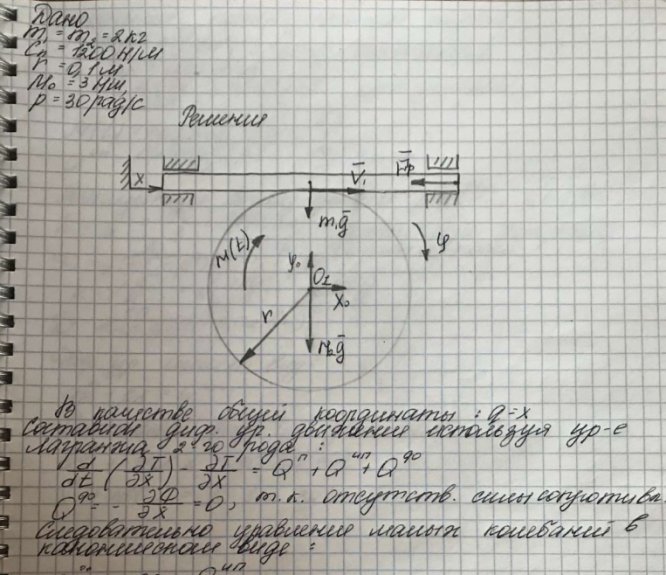 Дано
m₁ = m₂ = 2 кг
Cп = 1200 Н/м
r = 0,1 м
M₀ = 3 Нм
p = 30 рад/с
Решение
x V̅₁ F̅пр
m₁g̅
M(t) φ
y₀ O₂
x₀
r
m₂g̅
В качестве общей координаты : q=x
Составим диф. ур. движения используя ур-е
Лагранжа 2-го рода :
d/dt (∂T/∂ẋ) - ∂T/∂x = Qⁿ + Qᶦᶰ + Qᵠᵒ
Qᵠᵒ = - ∂Φ/∂ẋ = 0, т.к. отсутств. силы сопротивл.
Следовательно уравнение малых колебаний в
каноническом виде :